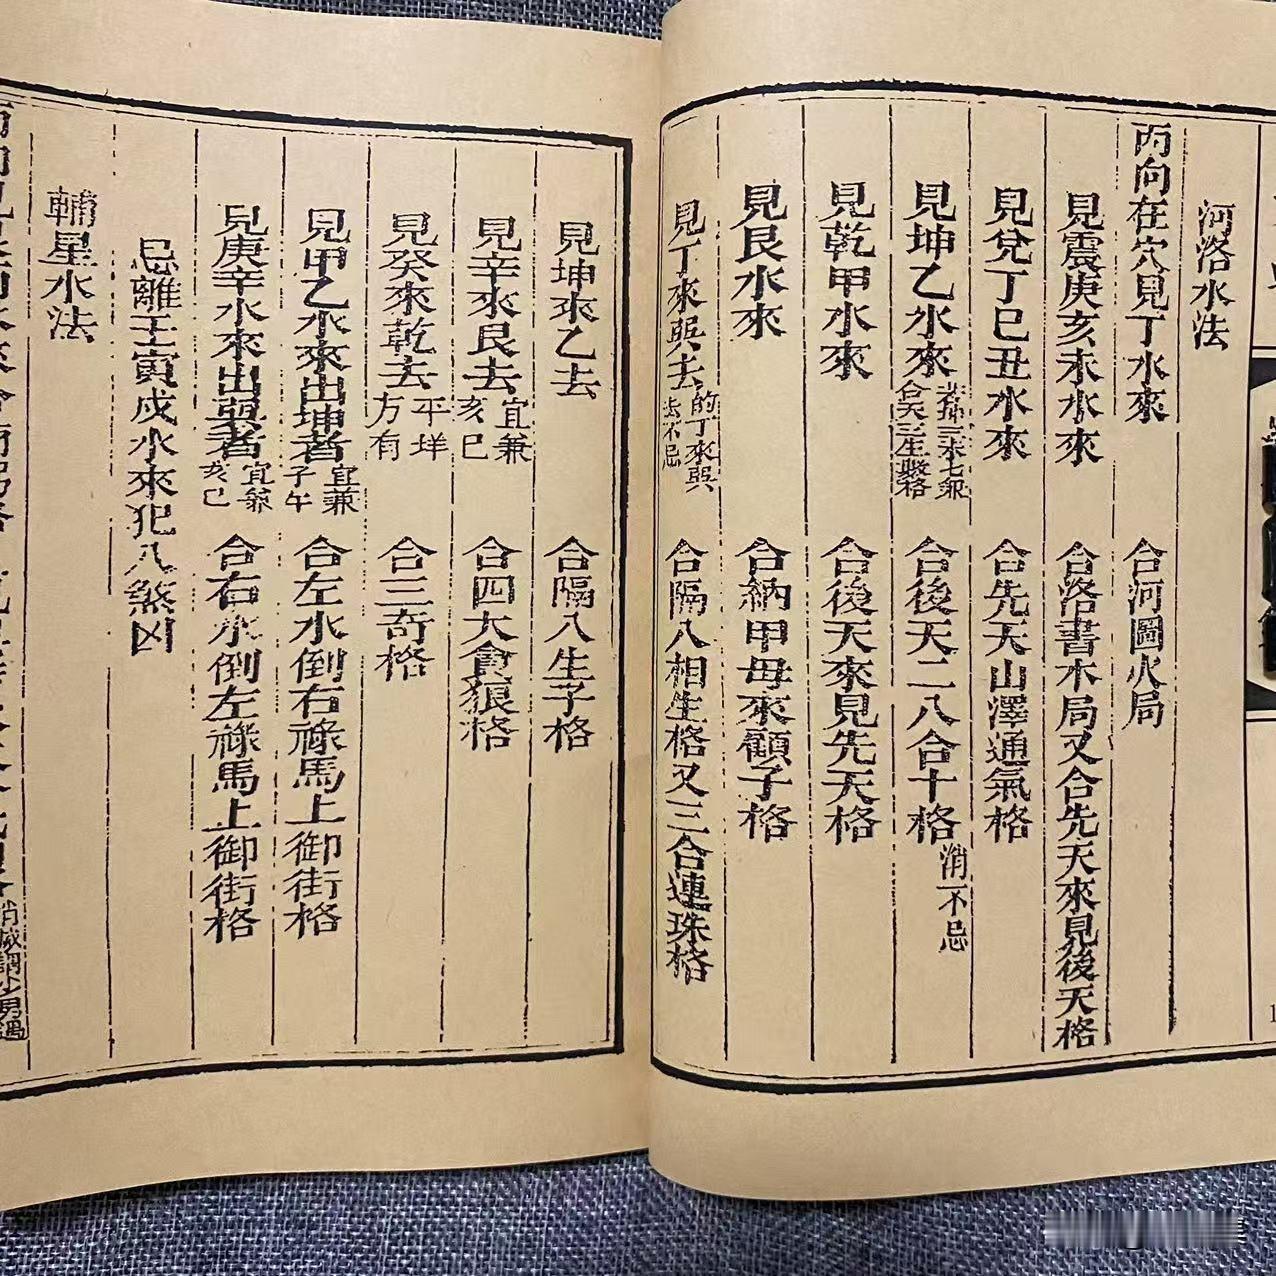 河洛水法
丙向在穴見丁水來 合河圖火局
見震庚亥未水來 合洛書木局又合先天來見後天格
見兌丁巳丑水來 合先天山澤通氣格
見坤乙水來 合後天二八合十格 消不忌
見乾甲水來 合後天來見先天格
見艮水來 合納甲母來顧子格
見丁來巽去 的丁來巽去不忌 合隔八相生格又三合連珠格
見坤來乙去 合隔八生子格
見辛來艮去 宜兼亥巳 合四大貪狼格
見癸來乾去 平洋方有 合三奇格
見甲乙水來出坤者 宜兼子午 合左水倒右祿馬上御街格
見庚辛水來出巽者 宜兼亥巳 合右水倒左祿馬上御街格
忌離壬寅戌水來犯八煞凶
輔星水法